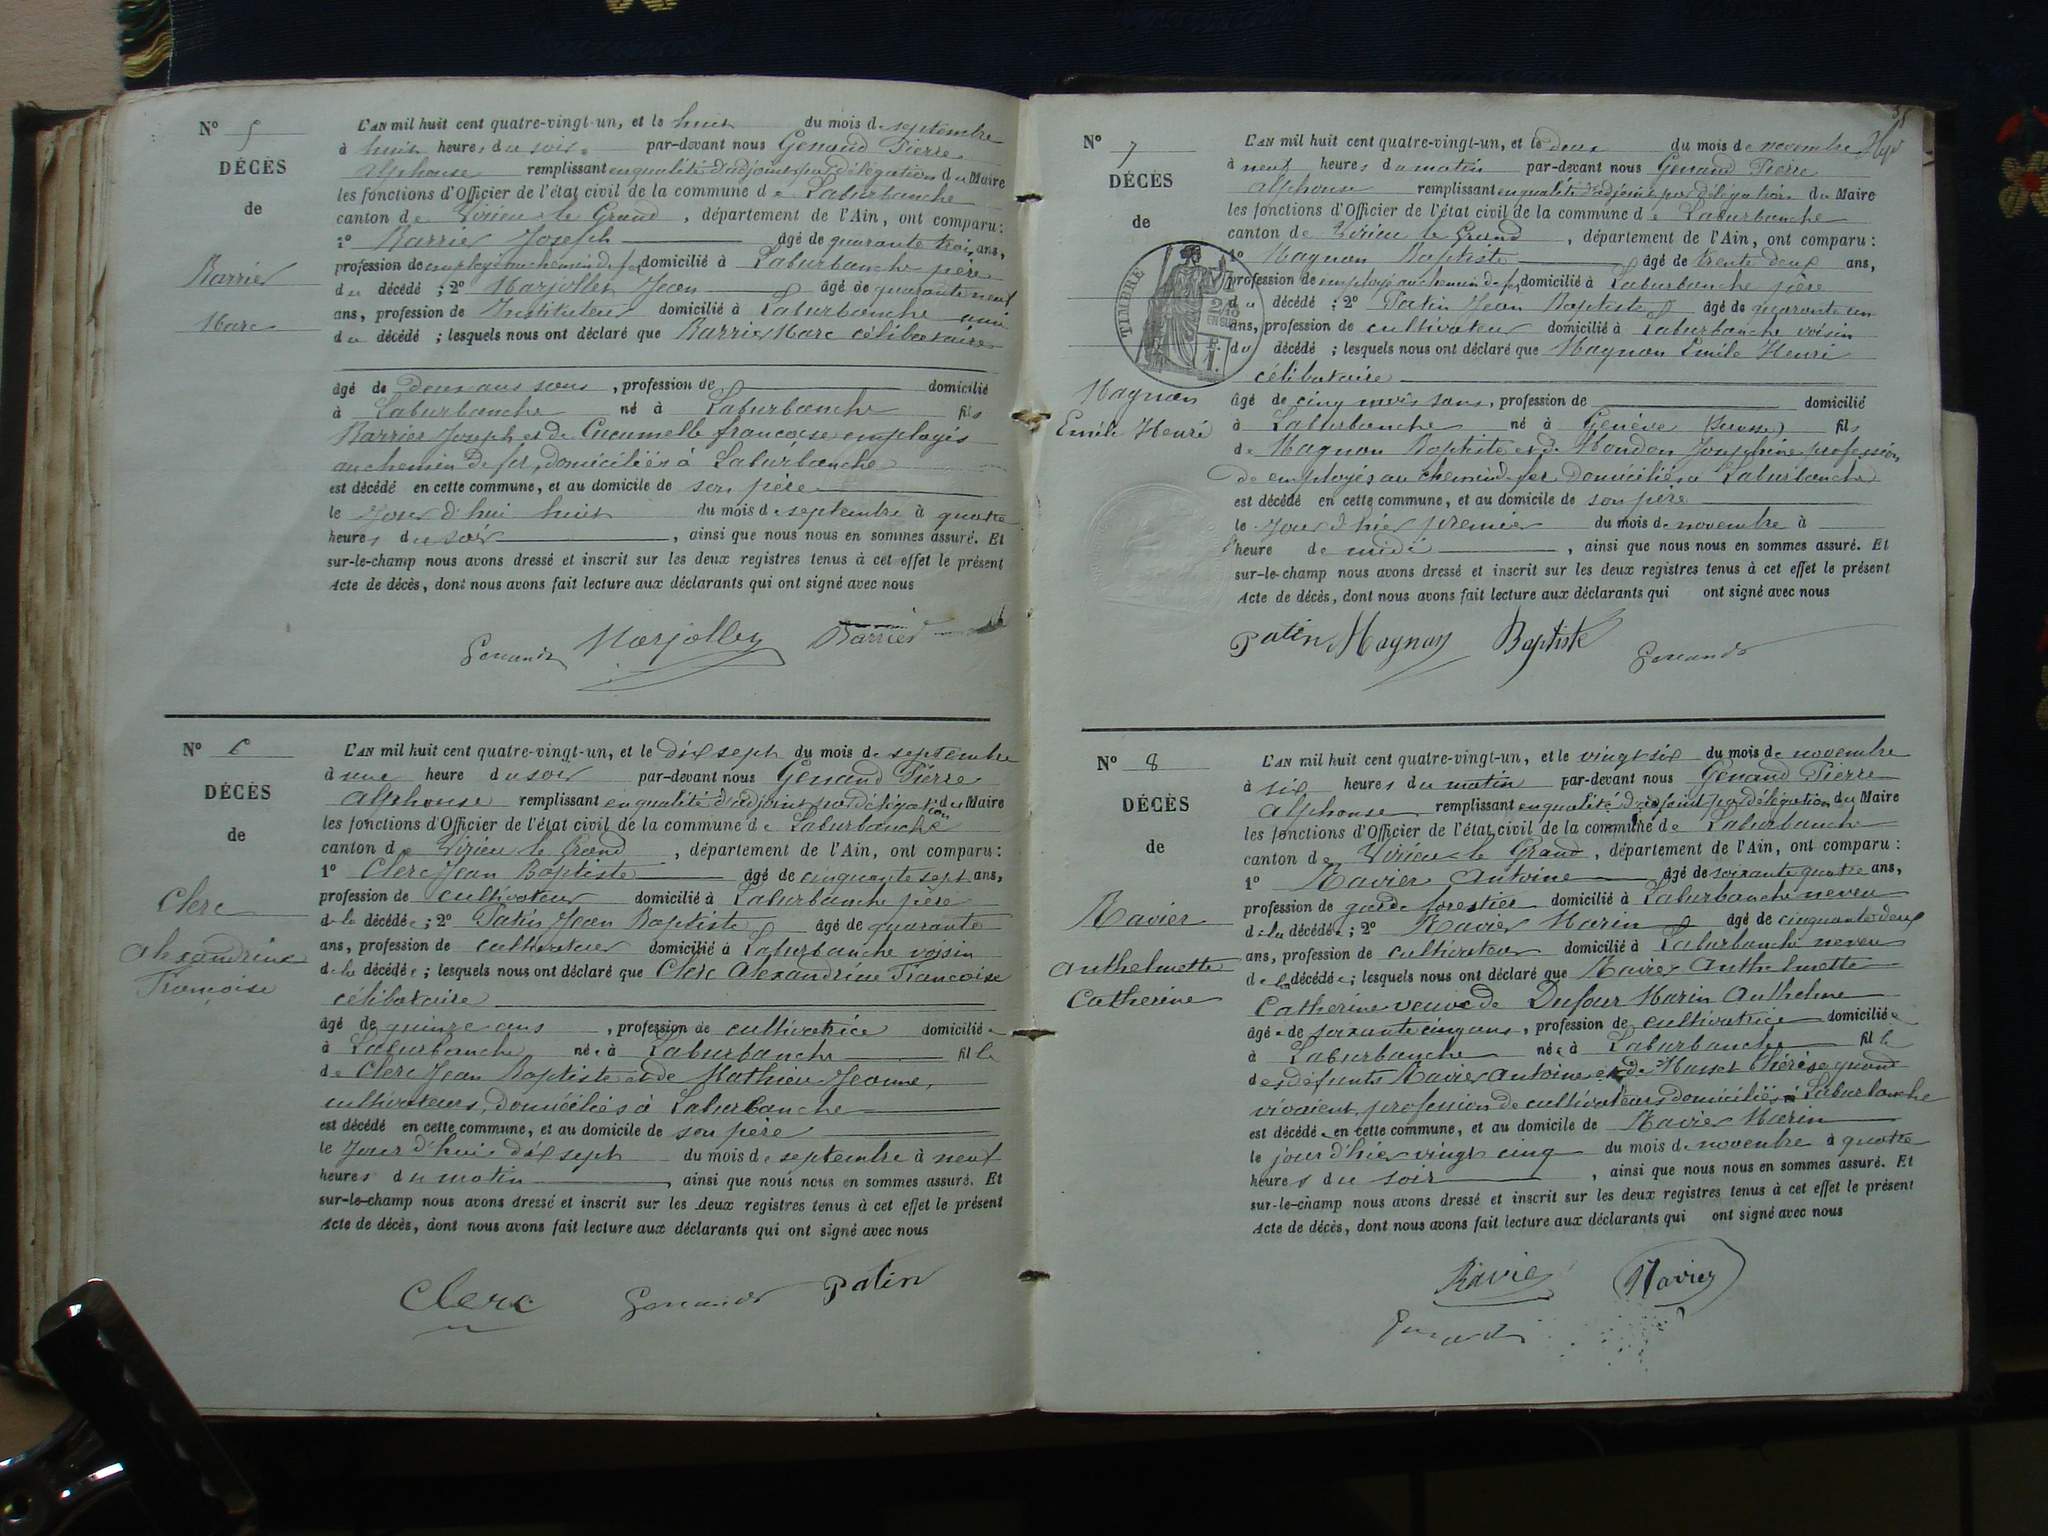 N° 5
DÉCÈS
de
Barrier
Marc
L'AN mil huit cent quatre-vingt-un, et le huit du mois de septembre
à huit heures du soir par-devant nous Genand Pierre
Alphonse remplissant en qualité d'adjoint par délégation du Maire
les fonctions d'Officier de l'état civil de la commune de Laburbanche
canton de Virieu le Grand, département de l'Ain, ont comparu :
1° Barrier Joseph âgé de quarante trois ans,
profession de employé au chemin de fer domicilié à Laburbanche père
du décédé ; 2° Marjollet Jean âgé de quarante neuf
ans, profession de Instituteur domicilié à Laburbanche ami
du décédé ; lesquels nous ont déclaré que Barrier Marc célibataire
âgé de deux ans sans, profession de domicilié
à Laburbanche né à Laburbanche fils
Barrier Joseph et de Cucumelle francoise employés
au chemin de fer, domiciliés à Laburbanche
est décédé en cette commune, et au domicile de son père
le jour d'hui huit du mois de septembre à quatre
heures du soir, ainsi que nous nous en sommes assuré. Et
sur-le-champ nous avons dressé et inscrit sur les deux registres tenus à cet effet le présent
Acte de décès, dont nous avons fait lecture aux déclarants qui ont signé avec nous
Genand Marjollet Barrier
N° 6
DÉCÈS
de
Clerc
Alexandrine
Françoise
L'AN mil huit cent quatre-vingt-un, et le dix sept du mois de septembre
à une heure du soir par-devant nous Genand Pierre
Alphonse remplissant en qualité d'adjoint par délégation du Maire
les fonctions d'Officier de l'état civil de la commune de Laburbanche
canton de Virieu le Grand, département de l'Ain, ont comparu :
1° Clerc Jean Baptiste âgé de cinquante sept ans,
profession de cultivateur domicilié à Laburbanche père
de la décédée ; 2° Patin Jean Baptiste âgé de quarante
ans, profession de cultivateur domicilié à Laburbanche voisin
de la décédée ; lesquels nous ont déclaré que Clerc Alexandrine Francoise
célibataire
âgé de quinze ans, profession de cultivatrice domiciliée
à Laburbanche née à Laburbanche fille
de Clerc Jean Baptiste et de Mathieu Jeanne,
cultivateurs, domiciliés à Laburbanche
est décédé en cette commune, et au domicile de son père
le jour d'hui dix sept du mois de septembre à neuf
heures du matin, ainsi que nous nous en sommes assuré. Et
sur-le-champ nous avons dressé et inscrit sur les deux registres tenus à cet effet le présent
Acte de décès, dont nous avons fait lecture aux déclarants qui ont signé avec nous
Clerc Genand Patin
N° 7
DÉCÈS
de
TIMBRE
Magnan
Emile Henri
L'AN mil huit cent quatre-vingt-un, et le deux du mois de novembre
à neuf heures du matin par-devant nous Genand Pierre
Alphonse remplissant en qualité d'adjoint par délégation du Maire
les fonctions d'Officier de l'état civil de la commune de Laburbanche
canton de Virieu le Grand, département de l'Ain, ont comparu :
1° Magnan Baptiste âgé de trente deux ans,
profession de employé au chemin de fer domicilié à Laburbanche père
du décédé ; 2° Patin Jean Baptiste âgé de quarante un
ans, profession de cultivateur domicilié à Laburbanche voisin
du décédé ; lesquels nous ont déclaré que Magnan Emile Henri
célibataire
âgé de cinq mois sans, profession de domicilié
à Laburbanche né à Genève (Suisse) fils
de Magnan Baptiste et de Moudon Josephine profession
de employés au chemin de fer domiciliés à Laburbanche
est décédé en cette commune, et au domicile de son père
le jour d'hier premier du mois de novembre à
heure de midi, ainsi que nous nous en sommes assuré. Et
sur-le-champ nous avons dressé et inscrit sur les deux registres tenus à cet effet le présent
Acte de décès, dont nous avons fait lecture aux déclarants qui ont signé avec nous
Patin Magnan Baptiste Genand
N° 8
DÉCÈS
de
Ravier
Anthelmette
Catherine
L'AN mil huit cent quatre-vingt-un, et le vingt six du mois de novembre
à six heures du matin par-devant nous Genand Pierre
Alphonse remplissant en qualité d'adjoint par délégation du Maire
les fonctions d'Officier de l'état civil de la commune de Laburbanche
canton de Virieu le Grand, département de l'Ain, ont comparu :
1° Ravier Antoine âgé de soixante quatre ans,
profession de garde forestier domicilié à Laburbanche neveu
de la décédée ; 2° Ravier Marin âgé de cinquante deux
ans, profession de cultivateur domicilié à Laburbanche neveu
de la décédée ; lesquels nous ont déclaré que Ravier Anthelmette
Catherine veuve de Dufour Marin Anthelme
âgée de soixante cinq ans, profession de cultivatrice domiciliée
à Laburbanche née à Laburbanche fille
des défunts Ravier Antoine et de Masset Thérèse quand
vivaient profession de cultivateurs domiciliés à Laburbanche
est décédé en cette commune, et au domicile de Ravier Marin
le jour d'hier vingt cinq du mois de novembre à quatre
heures du soir, ainsi que nous nous en sommes assuré. Et
sur-le-champ nous avons dressé et inscrit sur les deux registres tenus à cet effet le présent
Acte de décès, dont nous avons fait lecture aux déclarants qui ont signé avec nous
Ravier Ravier
Genand